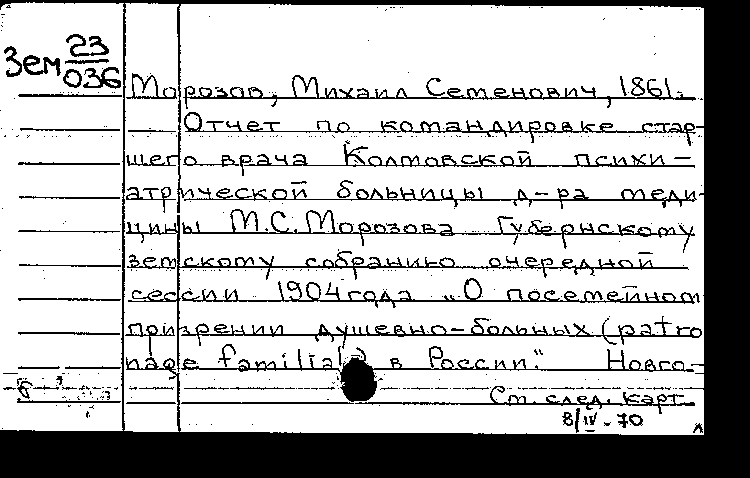 Зем 23/036
Морозов, Михаил Семенович, 1861-
Отчет по командировке стар-
шего врача Колмовской психи-
атрической больницы д-ра меди-
цины М.С. Морозова Губернскому
земскому собранию очередной
сессии 1904 года „О посемейном
призрении душевно-больных (patro
nage familial) в России." Новго-
См. след. карт.
8/IV-70